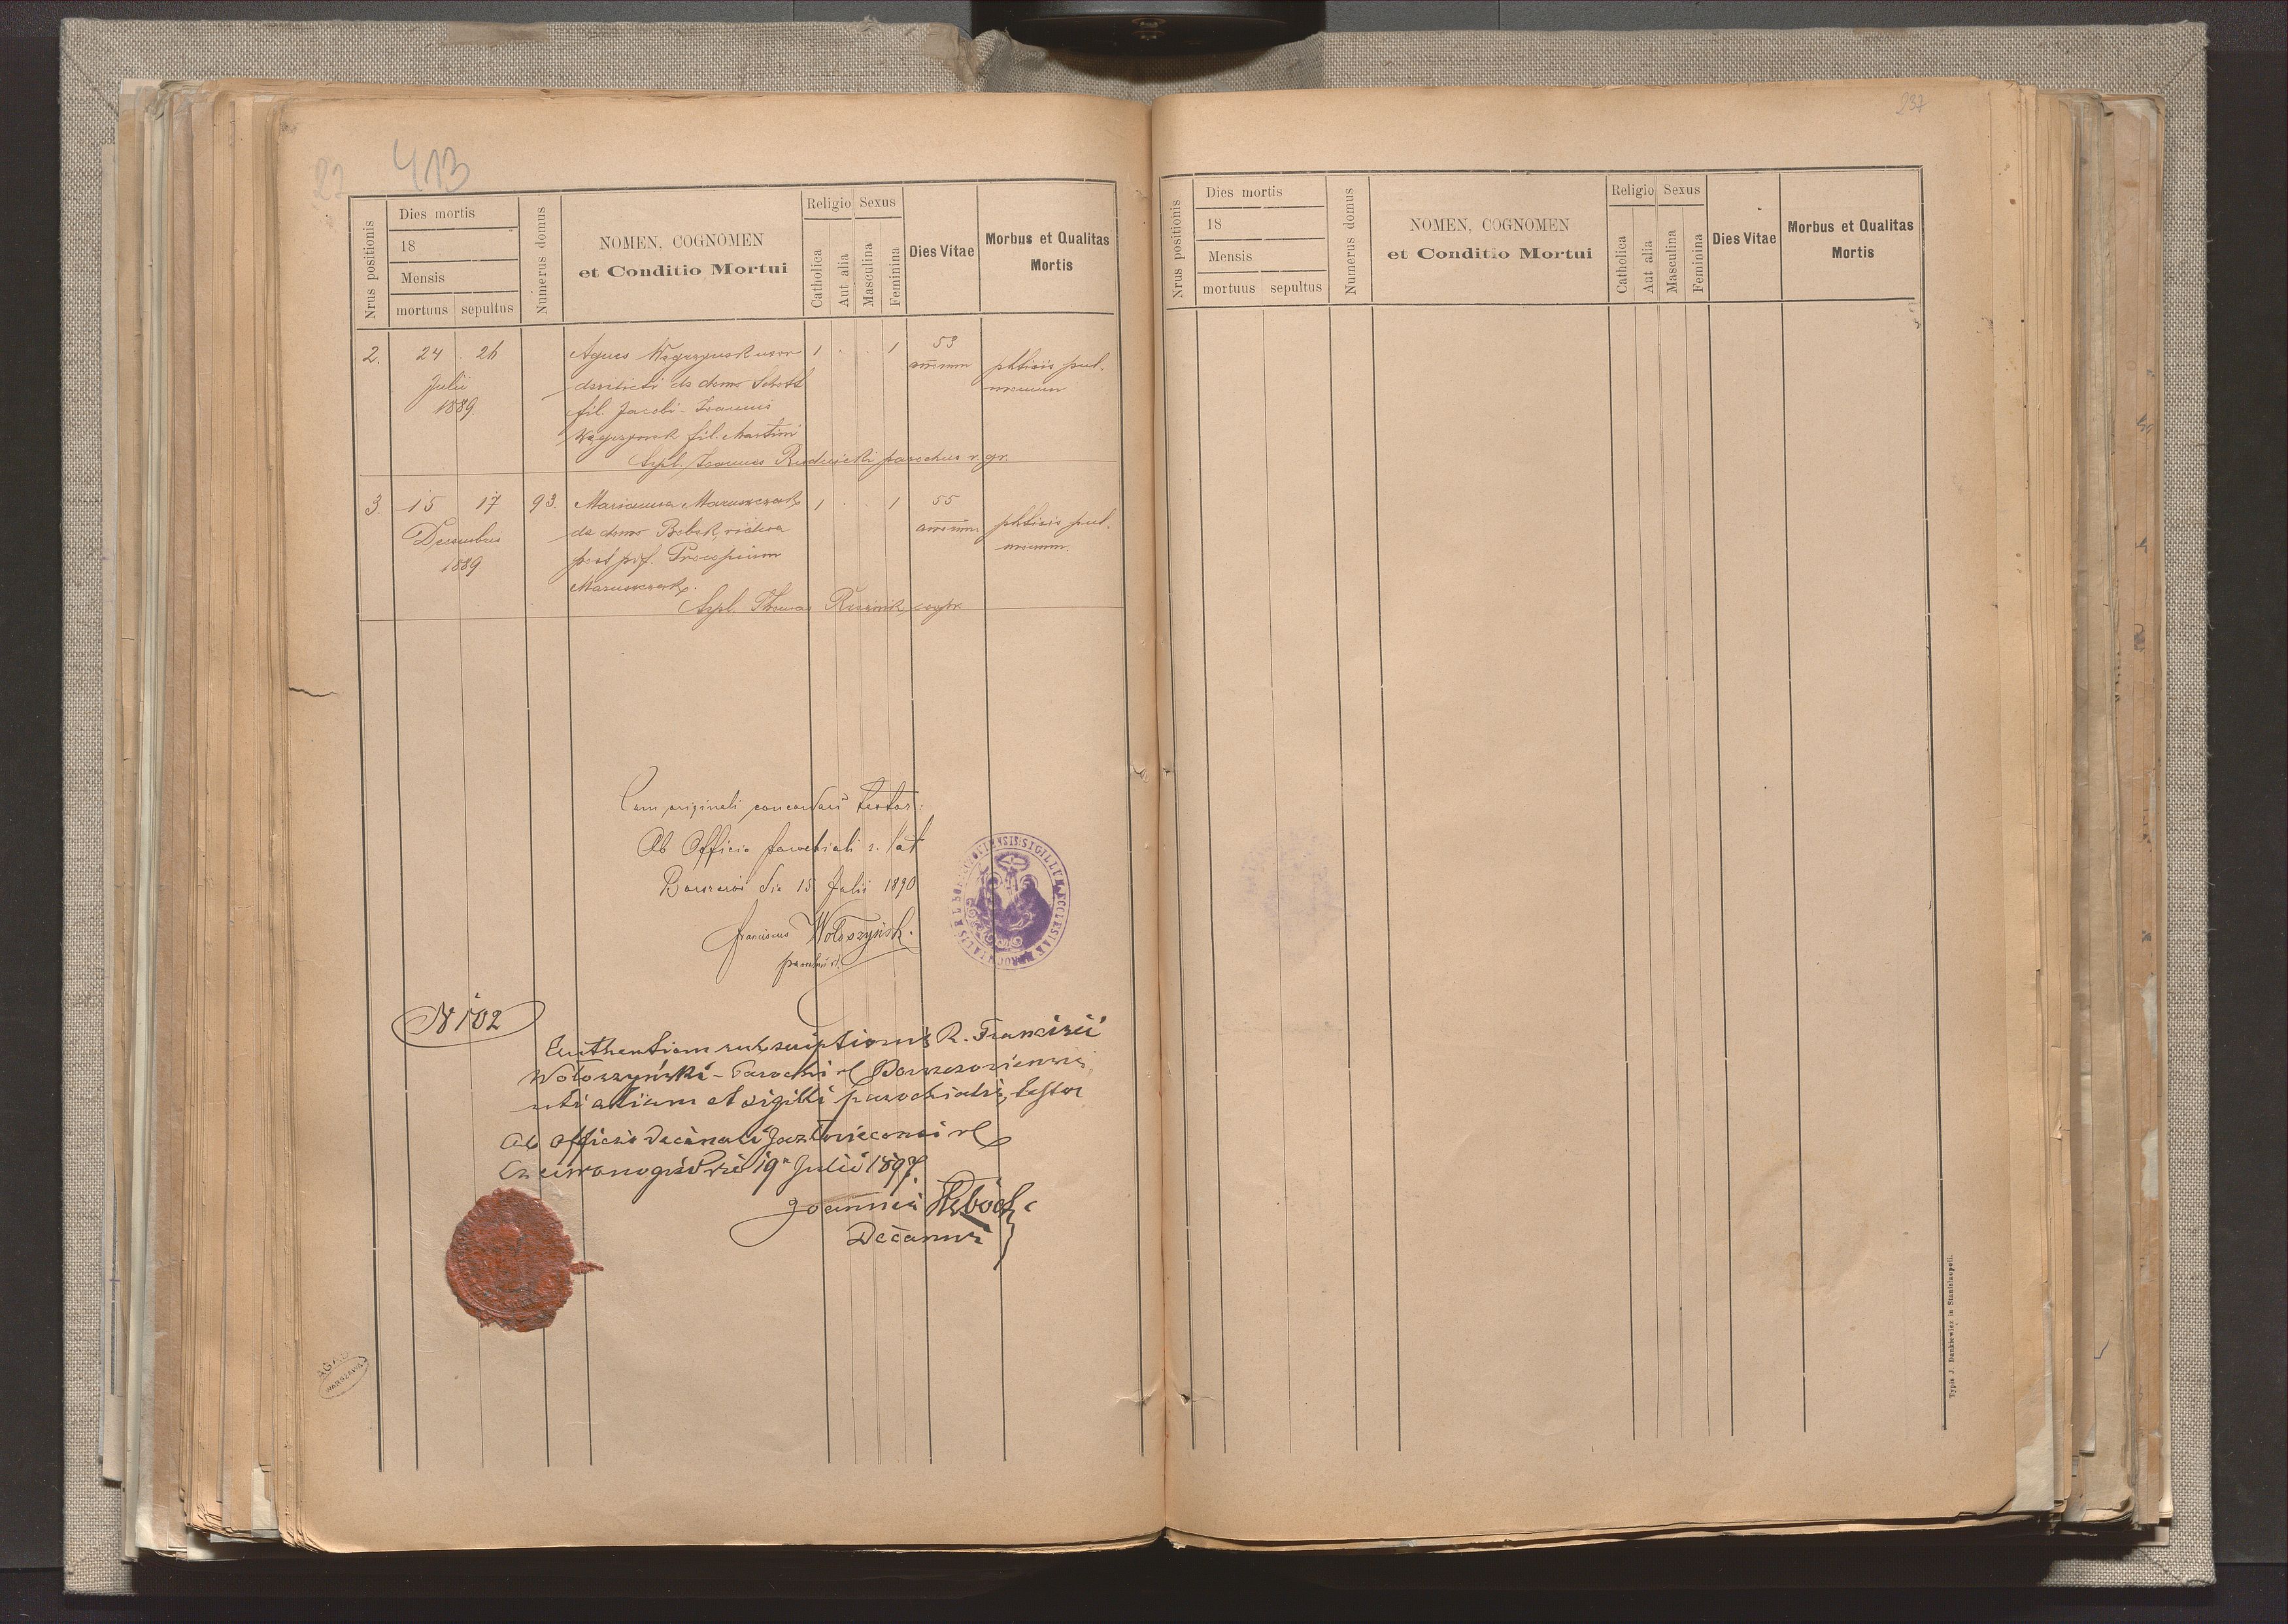 237
22 413
Nrus positionis
Dies mortis
18
Mensis
mortuus sepultus
Numerus domus
NOMEN, COGNOMEN
et Conditio Mortui
Religio
Catholica
Aut alia
Sexus
Masculina
Feminina
Dies Vitae
Morbus et Qualitas
Mortis
2. 24 26
Julii
1889.
Agnes Węgrzynok uxor
derelicti de domo Schott
fil. Jacobi - Joannis
Węgrzynok fil. Martini
1 . . 1
53
annorum
phtisis pul-
monum
Sepl. Joannes Rudnicki parochus r. gr.
3 15 17 93.
Decembris
1889
Marianna Maruszczak
de domo Bobek, vidua
post pif. Procopium
Maruszczak.
1 . . 1
55
annorum
phtisis pul-
monum.
Sepl. Thomas
Cum originali concordare testor.
Ab Officio parochiali r. lat
die 15 Julii 1890
Franciscus Wołoszyński.
parochus
SIGILLUM ECCLESIAE PAROCHIALIS R. L.
N 102
Authentiam subscriptionis R. Francisci
Wołoszyński - Parochi rl
uti etiam et sigilli parochialis, testor
Ab officio Decanali Jazłoviecensi rl
die 19 Julii 1897
Joannes
Decanus
AGAD
WARSZAWA
Nrus positionis
Dies mortis
18
Mensis
mortuus sepultus
Numerus domus
NOMEN, COGNOMEN
et Conditio Mortui
Religio
Catholica
Aut alia
Sexus
Masculina
Feminina
Dies Vitae
Morbus et Qualitas
Mortis
Typis J. Dankiewicz in Stanislaopoli.